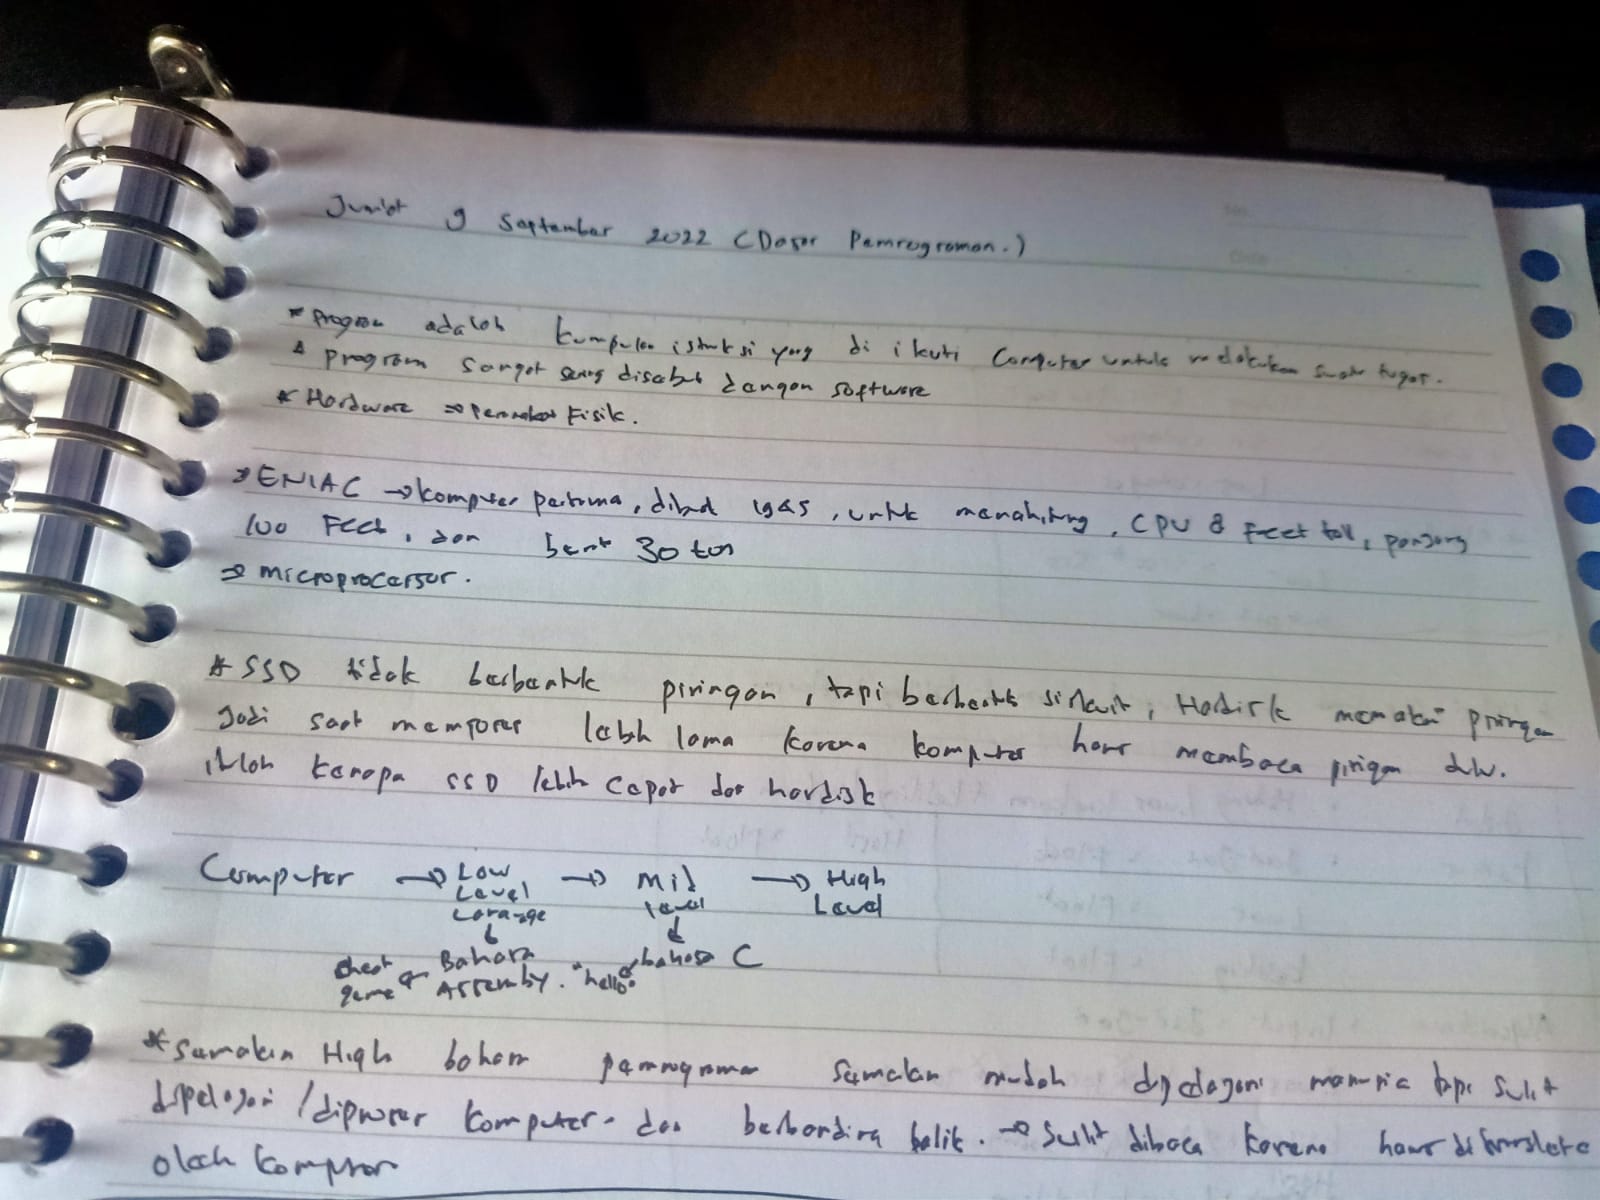 Jumat 9 September 2022 (Dasar Pemrograman.)
* Program adalah kumpulan istruksi yang di ikuti Computer untuk melakukan suatu tugas.
* program sangat sering disebut dengan software
* Hardware => Perangkat Fisik.
→ ENIAC → komputer pertama, dibuat 1945, untuk menghitung, CPU 8 Feet tall, panjang
100 Feet, dan berat 30 ton
→ microprocessor.
* SSD tidak berbentuk piringan, tapi berbentuk sirkuit, Hardisk memakai piringan
Jadi saat memproses lebih lama karena komputer harus membaca piringan dulu.
itulah kenapa SSD lebih cepat dari hardisk
Computer → Low → Mid → High
Level level Level
Language
Bahasa bahasa C
cheat game Assembly. "hello"
* Semakin High bahasa pemrograman semakin mudah dipelajari manusia tapi sulit
dipelajari / diproses komputer. dan berbanding balik. → Sulit dibaca karena harus di translate
oleh komputer